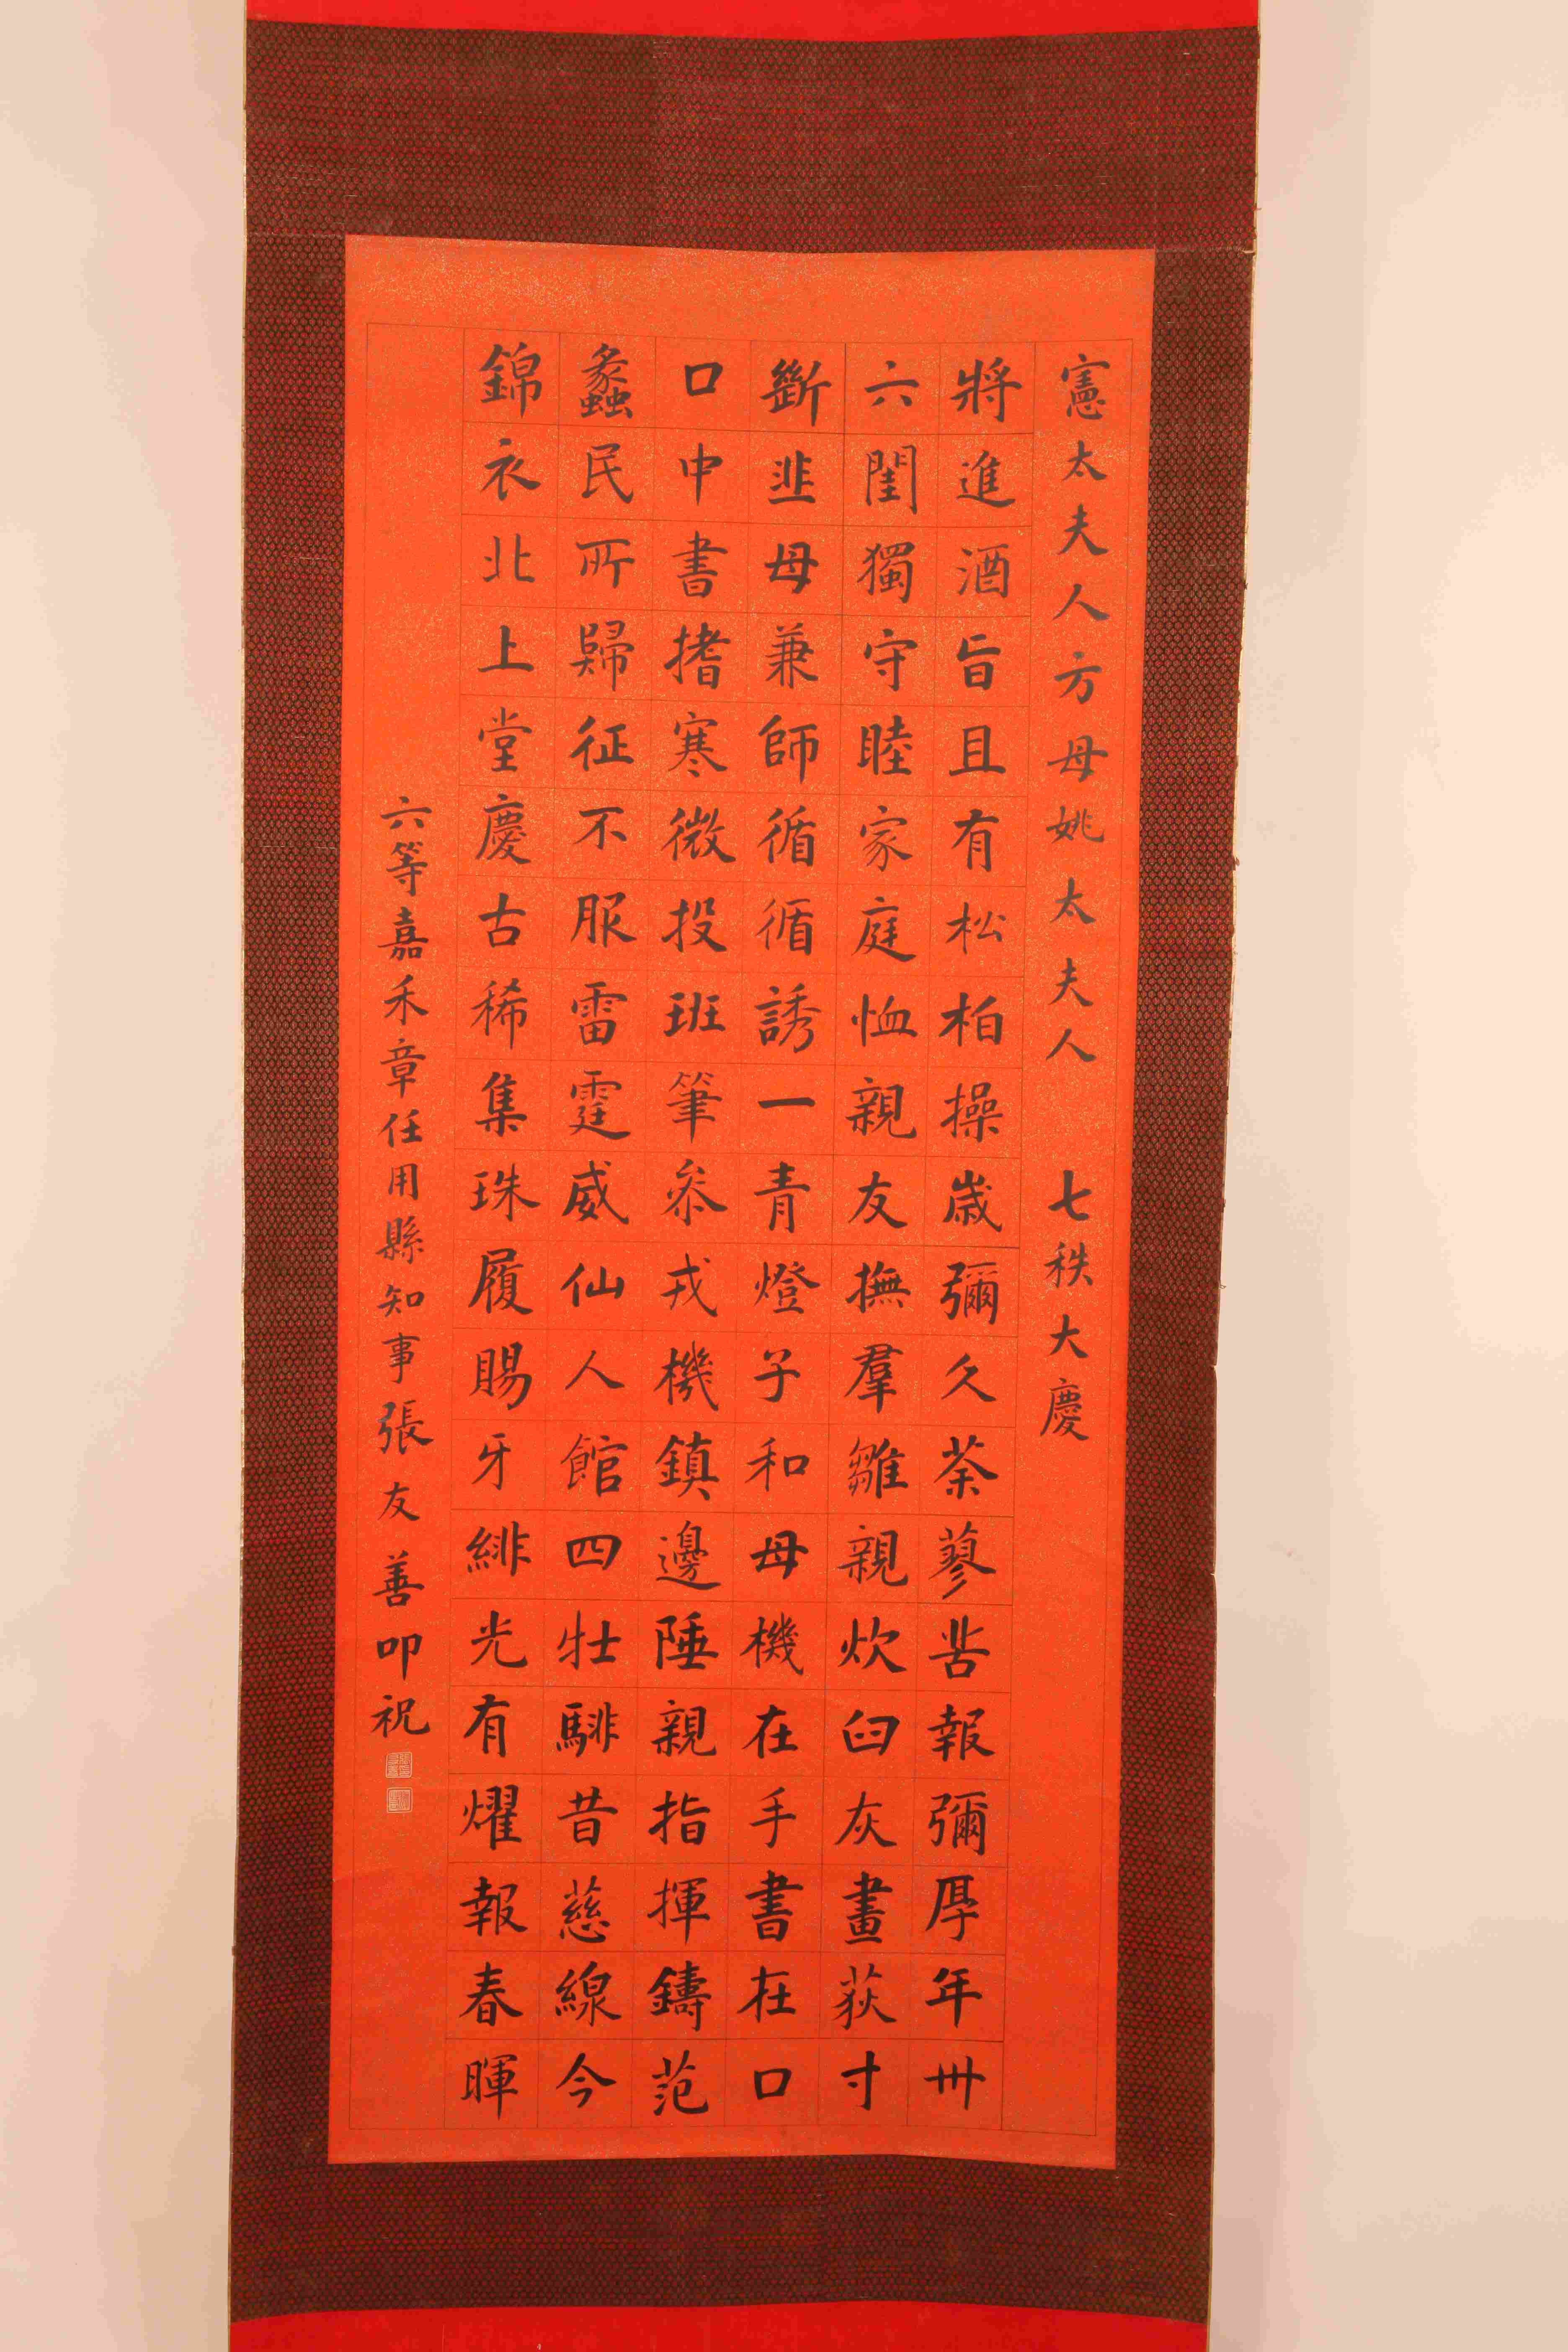 憲太夫人方母姚太夫人 七秩大慶
將進酒旨且有松柏操歲彌久荼蓼苦報彌厚年卅
六閨獨守睦家庭恤親友撫羣雛親炊臼灰畫荻寸
斷韭母兼師循循誘一青燈子和母機在手書在口
口中書搘寒微投班筆參戎機鎮邊陲親指揮鑄范
蠡民所歸征不服雷霆威仙人館四牡騑昔慈線今
錦衣北上堂慶古稀集珠履賜牙緋光有燿報春暉
六等嘉禾章任用縣知事張友善叩祝